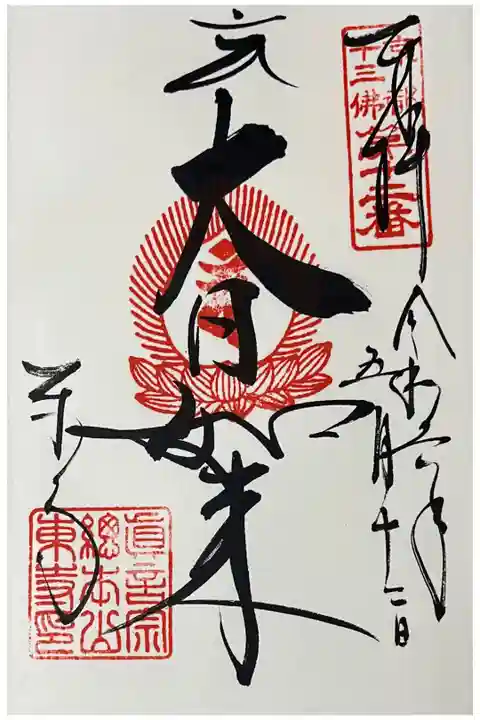 奉拝
京都
十三佛
第十二番
令和六年
五月十二日
大日如来
東寺
眞言宗
總本山
東寺印